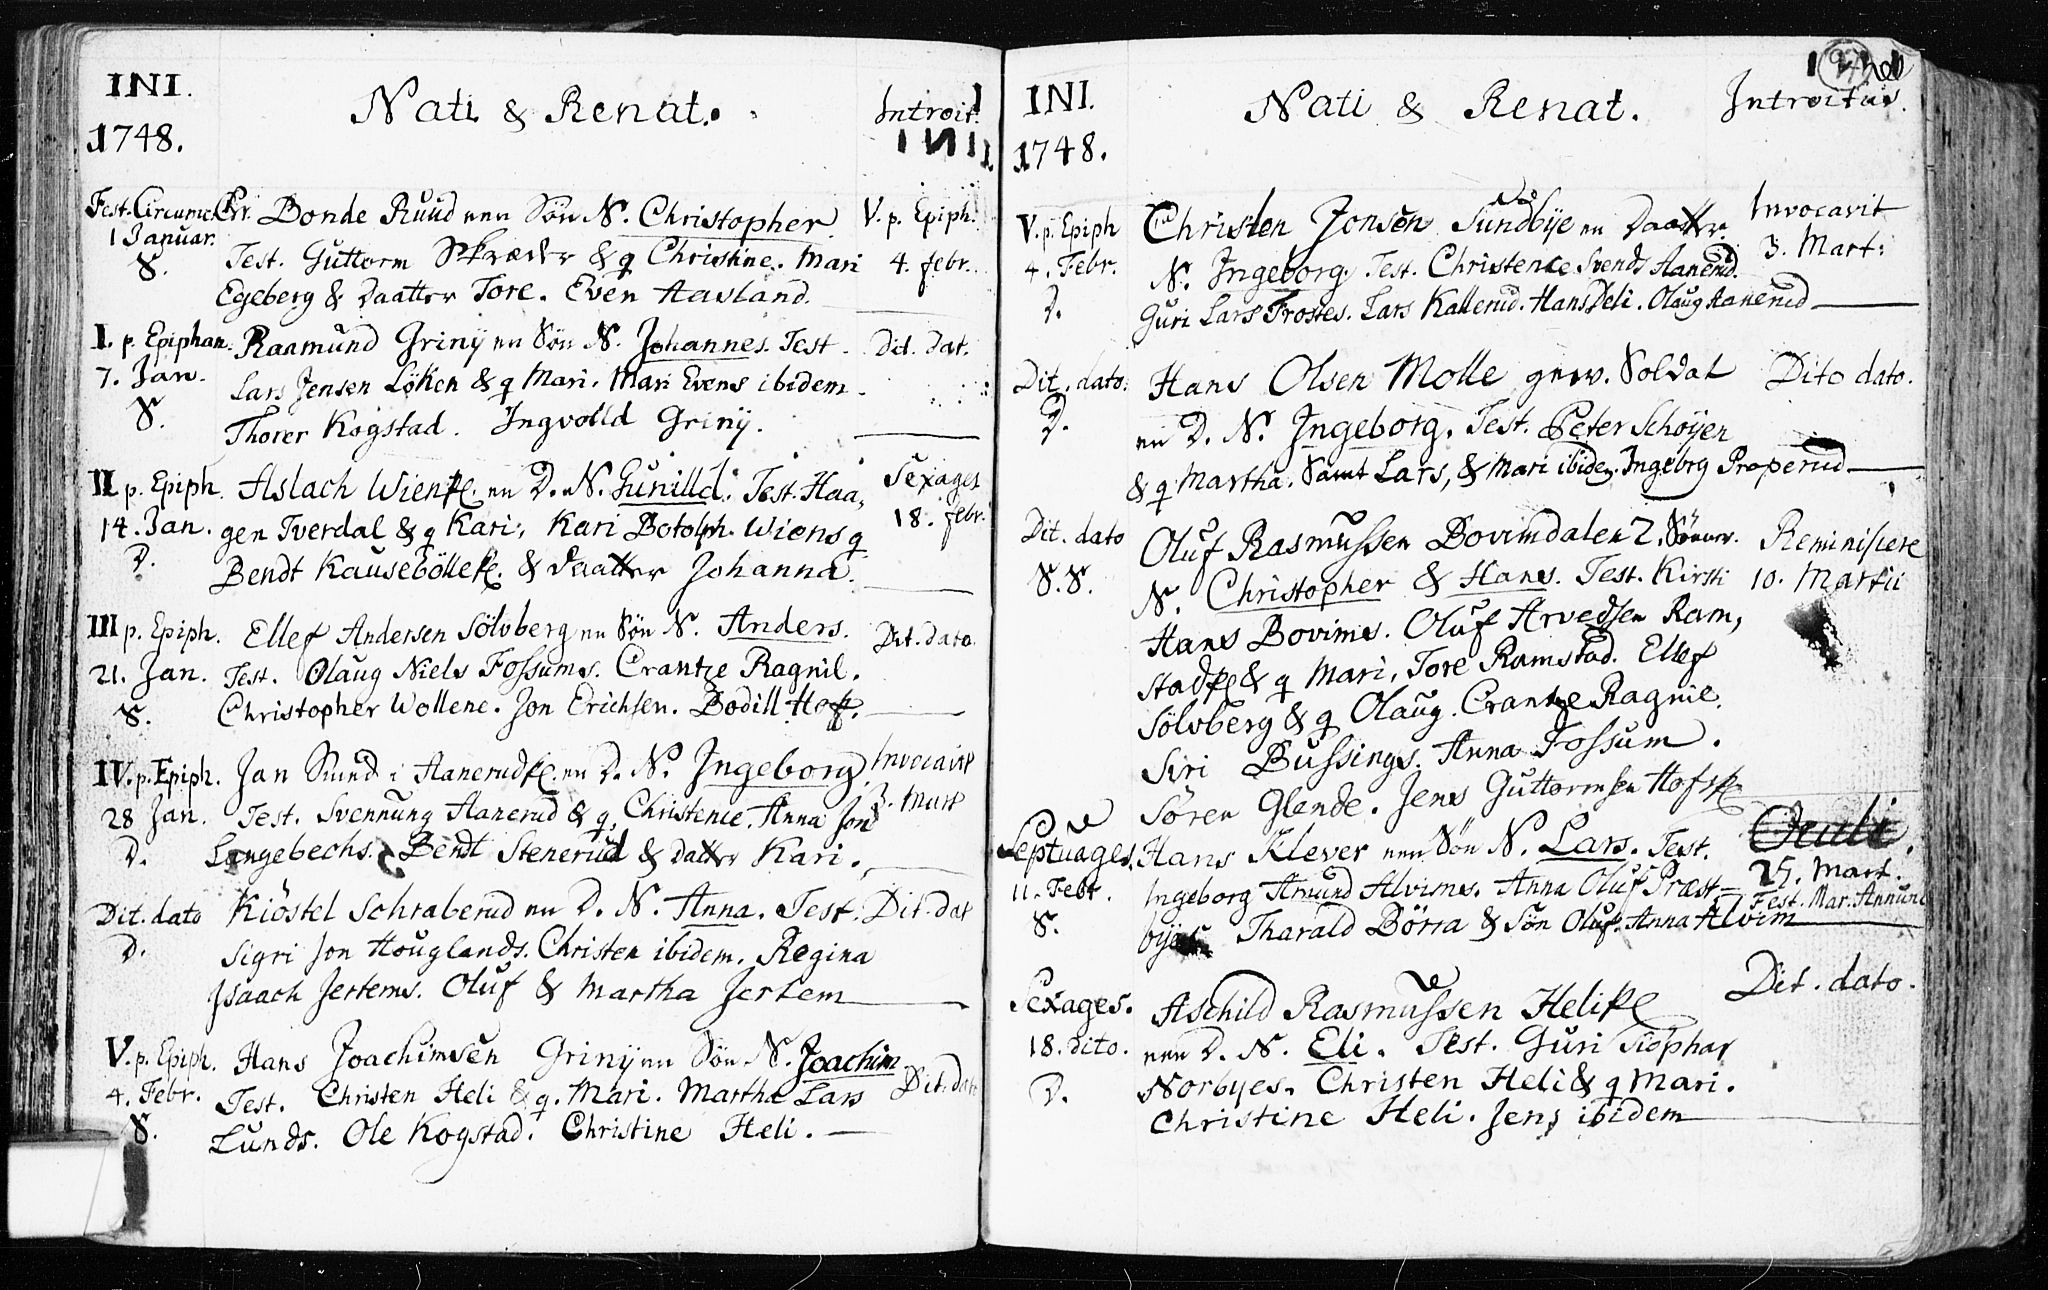 INI.
Nati & Renat.
Introit.
1748.
Fest. Circumc.
1 Januar.
S.
Chr. Bonde Ruud een Søn N. Christopher
V. p. Epiph.
Test. Guttorm Skræder & q Christine. Mari
4. febr.
Egeberg & Daatter Tore. Even Aavland.
I. p. Epiphan.
7. Jan.
S.
Raamund Griny en Søn N. Johannes. Test.
Dit. dat.
Lars Jensen Löken & q Mari. Mari Evens ibidem.
Thorer Kogstad. Ingvolld Griny.
II p. Epiph.
14. Jan.
D.
Aslach Wienpl. en D. N. Gunilld. Test. Haa,
Sexages
18. febr.
gen Tverdal & q Kari, Kari Botolph Wiens q
Bendt Kauseböllepl. & Daatter Johanna.
III p. Epiph.
21. Jan.
S.
Ellef Andersen Sölvberg en Søn N. Anders.
Dit. dato.
Test. Olaug Niels Fossums. Crantze Ragnil.
Christopher Wollene. Jon Erichsen. Bodill Hof.
IV. p. Epiph.
28 Jan.
D.
Jan Smed i Hanerudpl. en D. N. Ingeborg.
Invocavit
3. Mart
Test. Svennung Hanerud & q. Christence. Anna Jon
Langebechs. Bendt Stenerud & datter Kari.
Dit. dato
D.
Kiöstel Schraberud en D. N. Anna. Test.
Dit. dat
Sigri Jon Houglands. Christen ibidem. Regina
Isaach Jertems. Oluf & Martha Jertem
V. p. Epiph.
4. Febr.
S.
Hans Joachimsen Griny en Søn N. Joachim
Dit. dato
Test. Christen Heli & q. Mari. Martha Lars
Lunds. Ole Kogstad. Christine Heli.
INI.
Nati & Renat.
Introitus.
1748.
V. p. Epiph
4. Febr.
D.
Christen Jonsen Sundbye en Daatter
Invocavit
3. Mart:
N. Ingeborg. Test. Christence Svends Hanerud.
Guri Lars Frostes. Lars Kallerud. Hans Deli. Olaug Hanerud
Dit. dato.
D.
Hans Olsen Molle gev. Soldat
Dito dato.
en D. N. Ingeborg. Test. Peter Schöyen
& q Martha. Samt Lars, & Mari ibidem. Ingeborg Properud
Dit. dato
S. S.
Oluf Rasmussen Bovimdalen 2. Sönner.
Reminiscere
N. Christopher & Hans. Test. Kirsti
10. Martii
Hans Bovims. Oluf Arvedsen Ram,
stadpl & q Mari, Tore Ramstad. Ellef
Sölvberg & q Olaug. Crantze Ragnil.
Siri Bussings. Anna Fossum.
Sören Glende. Jens Guttormsen Hofspl
Septuages.
11. Febr.
S.
Hans Klever een Søn N. Lars. Test.
Oculi.
25. Mart.
Ingeborg Amund Alvims. Anna Oluf Præst-
Fest. Mar. Annunc
byes Tharald Börra & Søn Oluf. Anna Alvim
Sexages.
18. dito.
D.
Aschild Rasmussen Helipl
Dit. dato.
een D. N. Eli. Test. Guri Siöphar
Norbyes. Christen Heli & q Mari.
Christine Heli. Jens ibidem